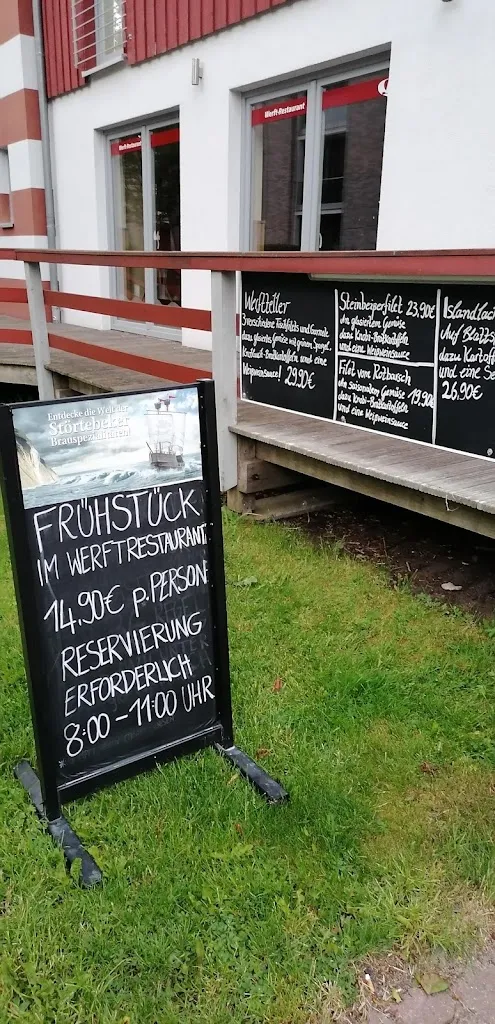 Werft-Restaurant
Werft-Restaurant
Werftteller
3 verschiedene Fischfilets und Garnele
dazu glasiertes Gemüse mit grünem Spargel
Knoblauch-Bratkartoffeln und eine
Weißweinsauce! 29,90€
Steinbeißerfilet 23,90€
an glasiertem Gemüse
dazu Knobi-Bratkartoffeln
und eine Weißweinsauce
Filet vom Rotbarsch
an saisonalem Gemüse 19,90€
dazu Knobi-Bratkartoffeln
und eine Weißweinsauce
Islandlac
auf
dazu Kartoff
und eine Se
26,90€
Entdecke die Welt der
Störtebeker
Brauspezialitäten
FRÜHSTÜCK
IM WERFTRESTAURANT
14,90€ p.PERSON
RESERVIERUNG
ERFORDERLICH
8:00 - 11:00 UHR